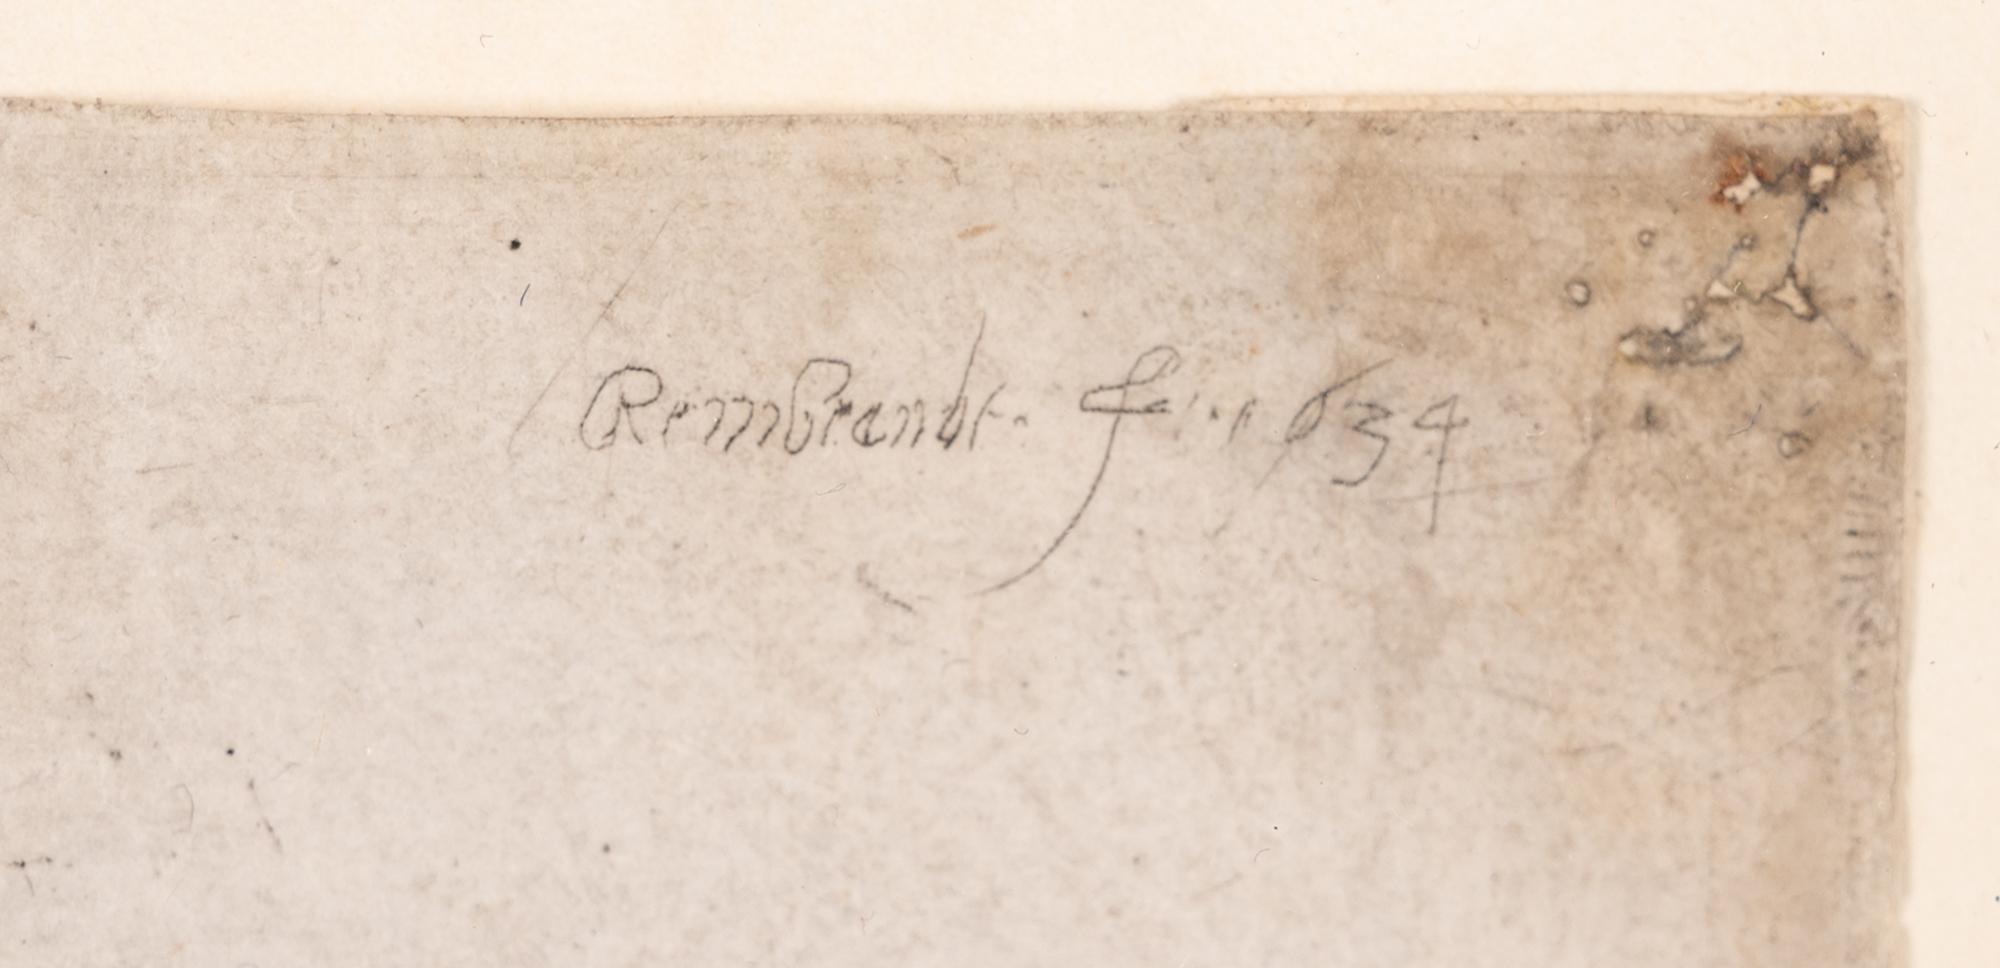 Rembrandt. f. 1634